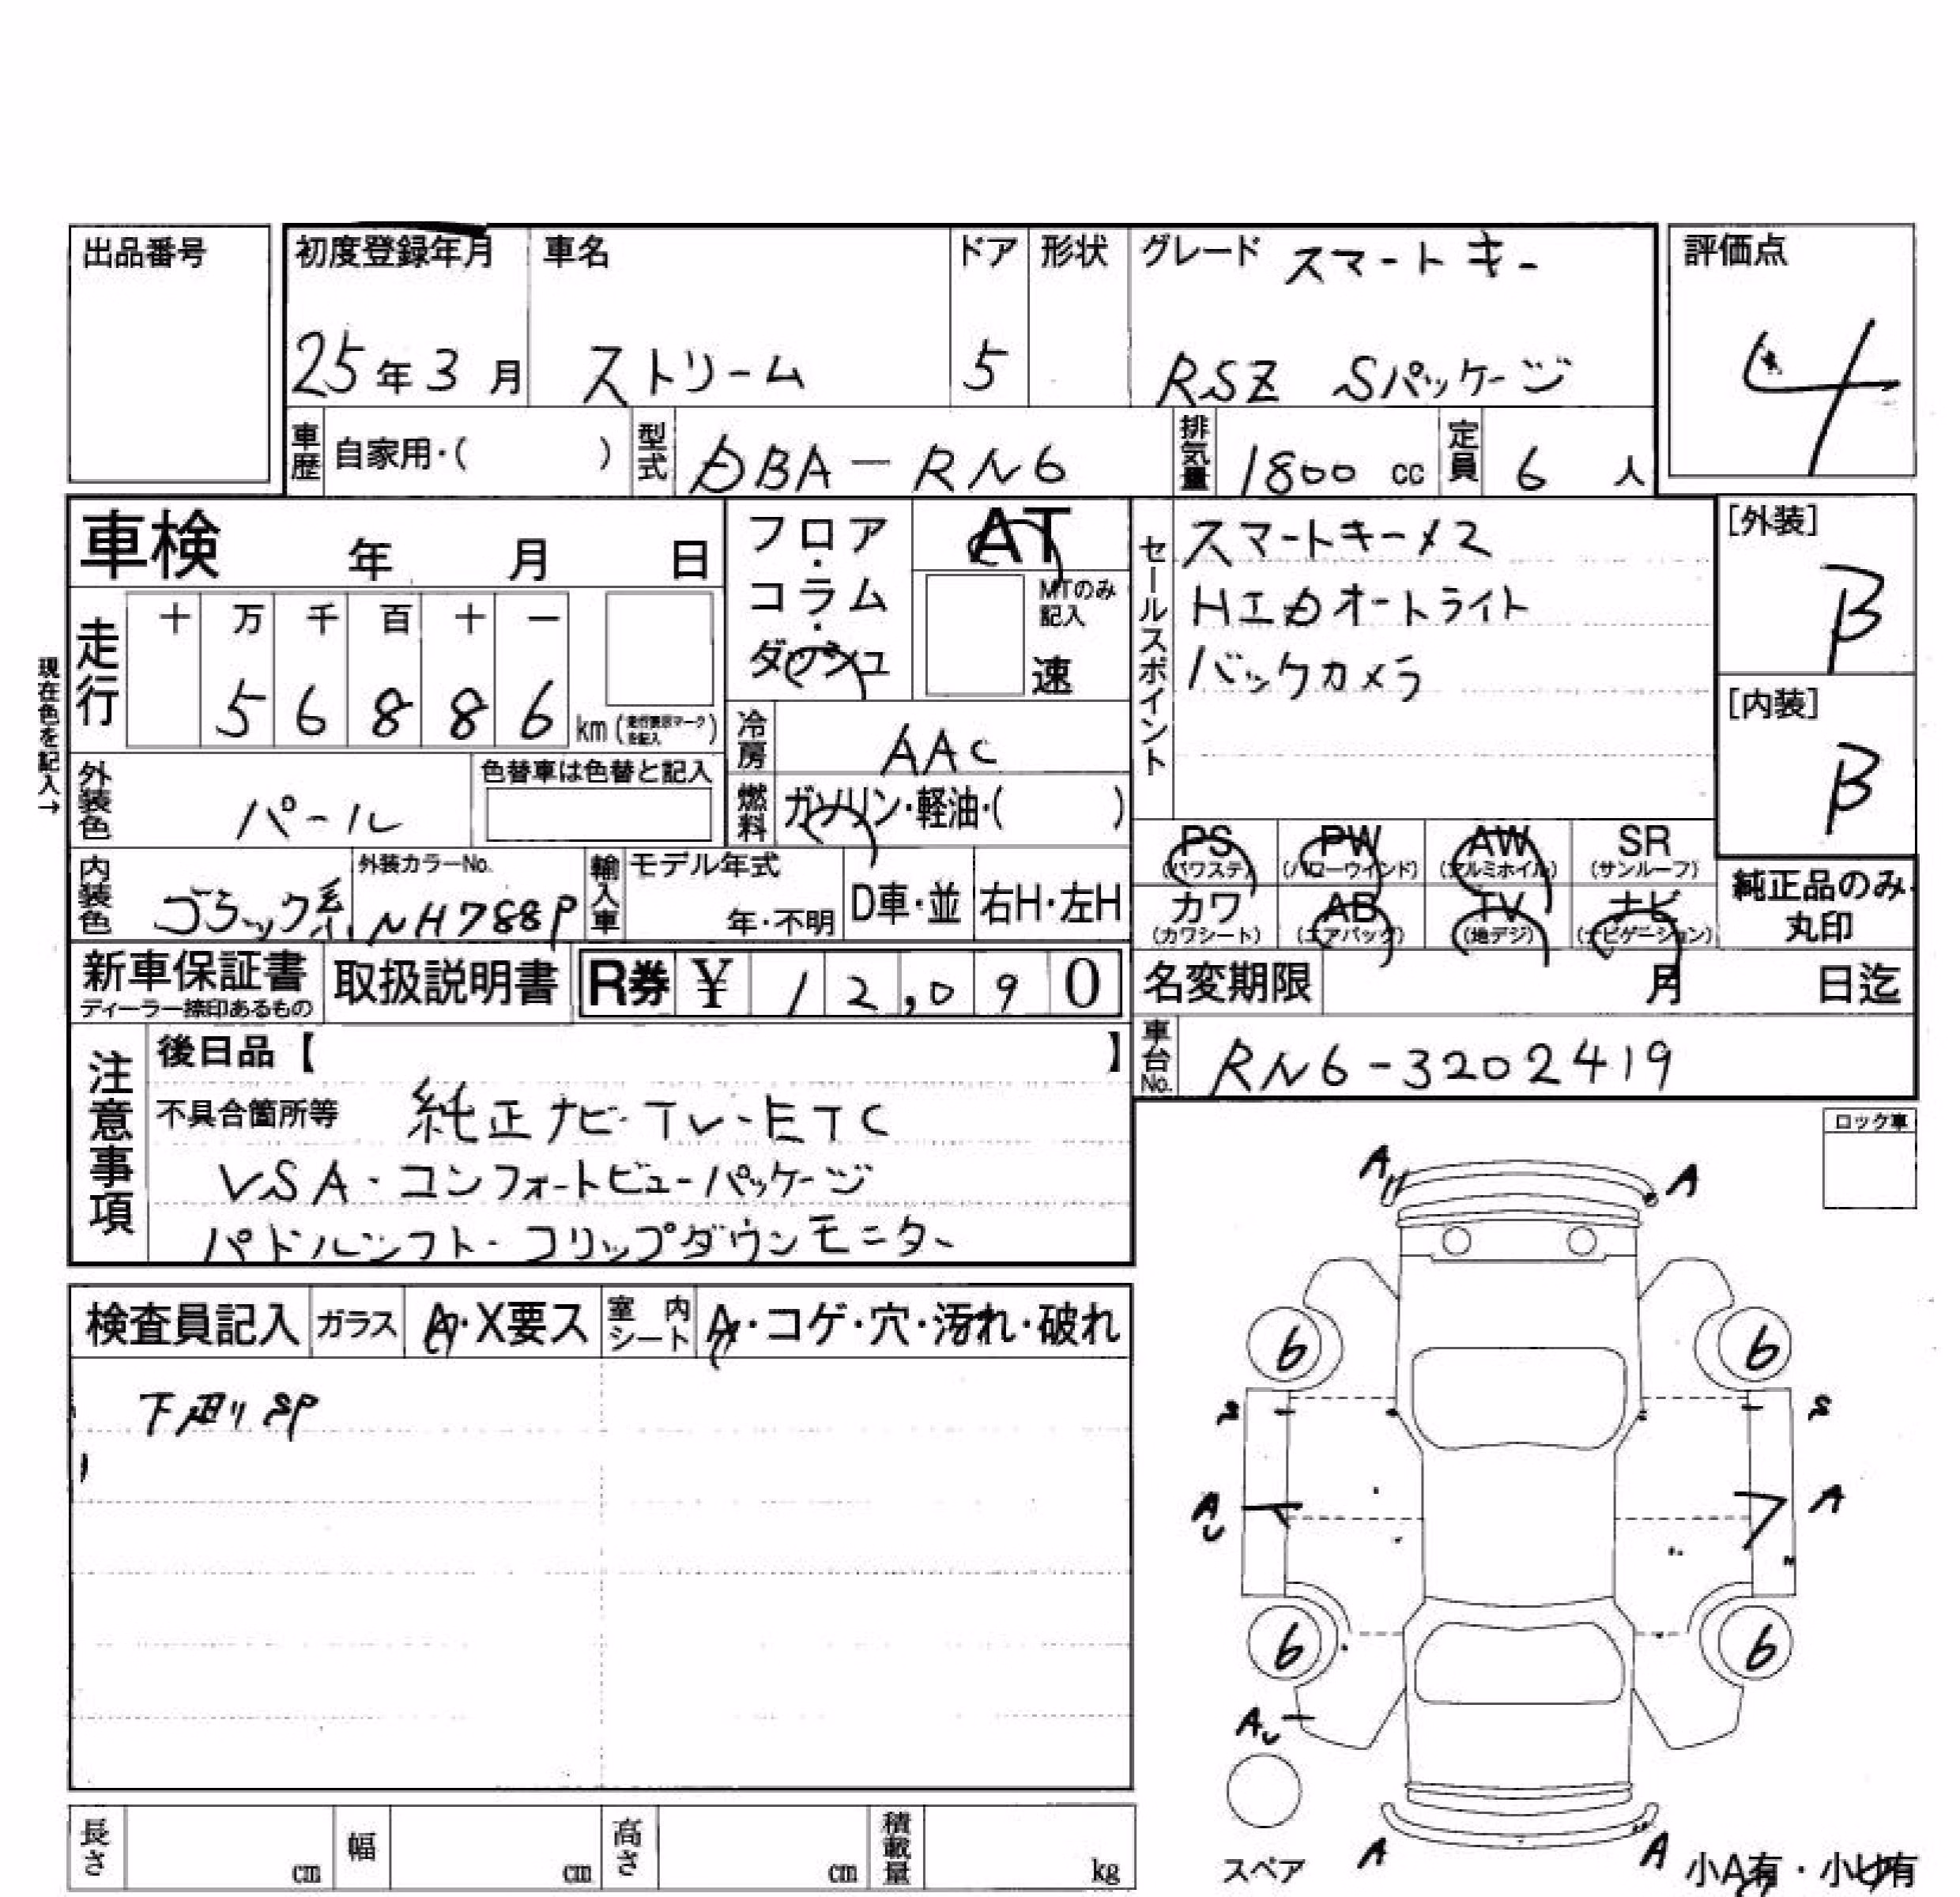 出品番号
初度登録年月 車名 ドア 形状 グレード スマートキー 評価点
25年3月 ストリーム 5 RSZ Sパッケージ 4
車歴 自家用・( ) 型式 DBA-RN6 排気量 1800 cc 定員 6 人
車検 年 月 日
フロア・コラム・ダッシュ
AT
MTのみ記入
速
セールスポイント
スマートキー×2
HIDオートライト
バックカメラ
[外装]
B
[内装]
B
現在色を記入→
走行 十 万 千 百 十 一
5 6 8 8 6 km
冷房 AAC
外装色 パール 色替車は色替と記入
燃料 ガソリン・軽油・( )
PS PW AW SR
(パワステ) (パワーウインド) (アルミホイル) (サンルーフ)
カワ AB TV ナビ
(カワシート) (エアバック) (地デジ) (ナビゲーション)
純正品のみ丸印
内装色 ブラック系 外装カラーNo. NH788P 輸入車 モデル年式 年・不明 D車・並 右H・左H
新車保証書 取扱説明書 R券 ¥ 12,090 名変期限 月 日迄
ディーラー捺印あるもの
車台No. RN6-3202419
注意事項
後日品【 】
不具合箇所等 純正ナビ・TV・ETC
VSA・コンフォートビューパッケージ
パドルシフト・フリップダウンモニター
ロック車
A A
検査員記入 ガラス A・X要ス 室内シート A・コゲ・穴・汚れ・破れ
下廻り SP
6 6
S S
AU A
6 6
AU
A A
スペア 小A有・小U有
長さ cm 幅 cm 高さ cm 積載量 kg